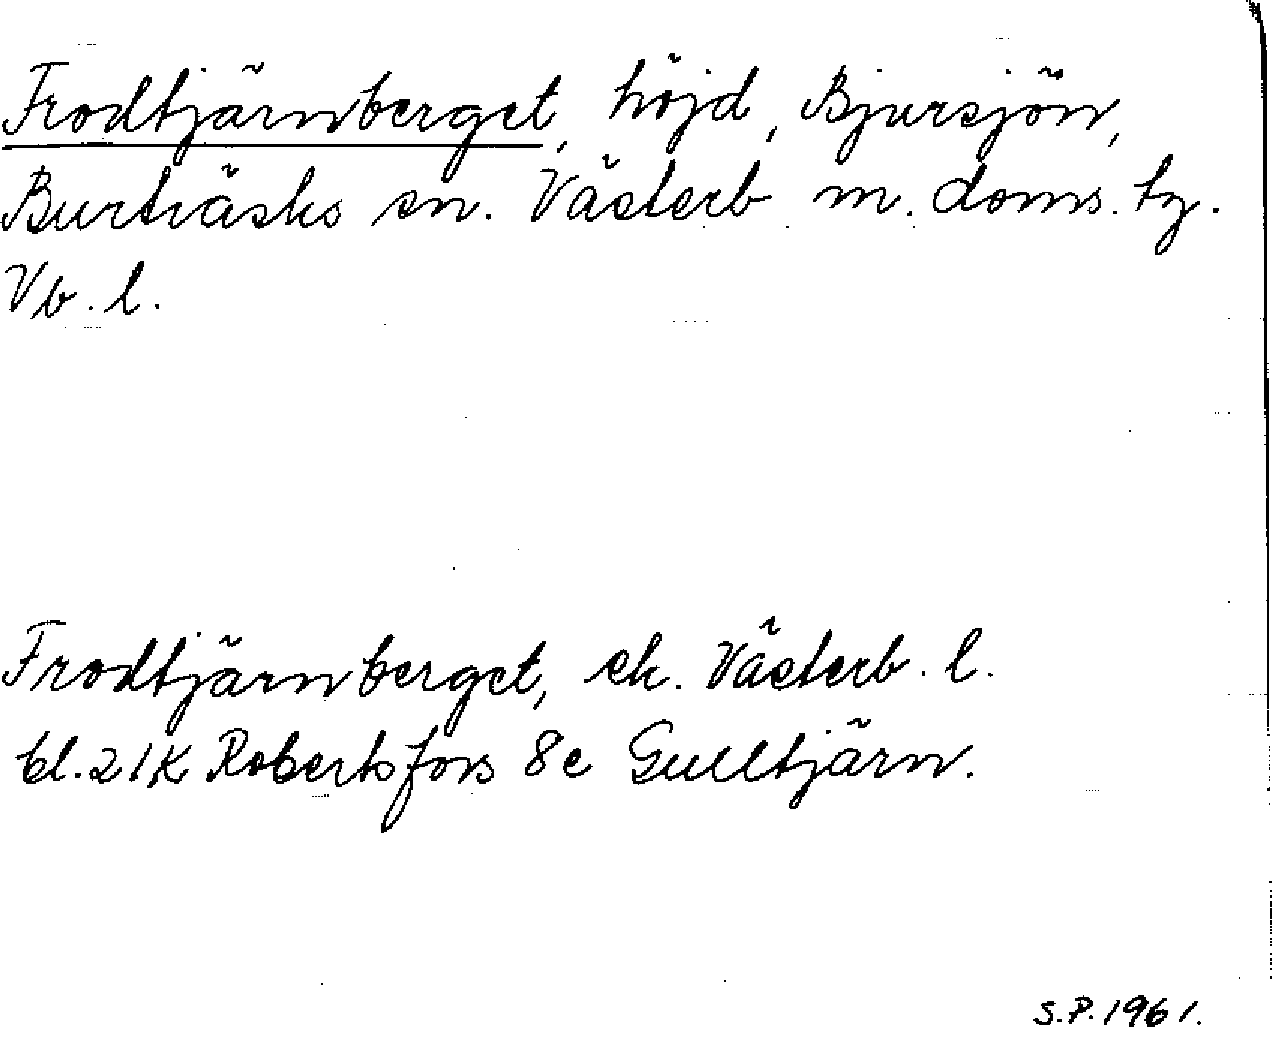 Frodtjärnberget, höjd, Bjursjön,
Burträsks sn. Västerb m. doms. tg.
Vb. l.
Frodtjärnberget, ek. Västerb. l.
bl. 21K Robertsfors 8e Gulltjärn.
S.P. 1961.